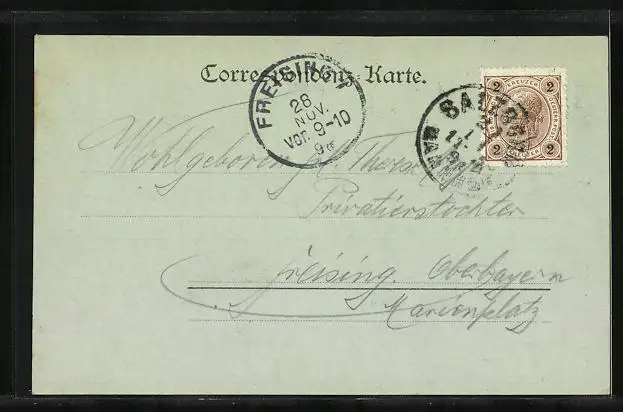 Correspondenz-Karte.
FREISING
28
NOV.
VOR. 9-10
2 KREUZER 2
2 2
SALZBURG
Wohlgeboren Frl. Therese
Privatierstochter
Freising. Oberbayern
Marienplatz